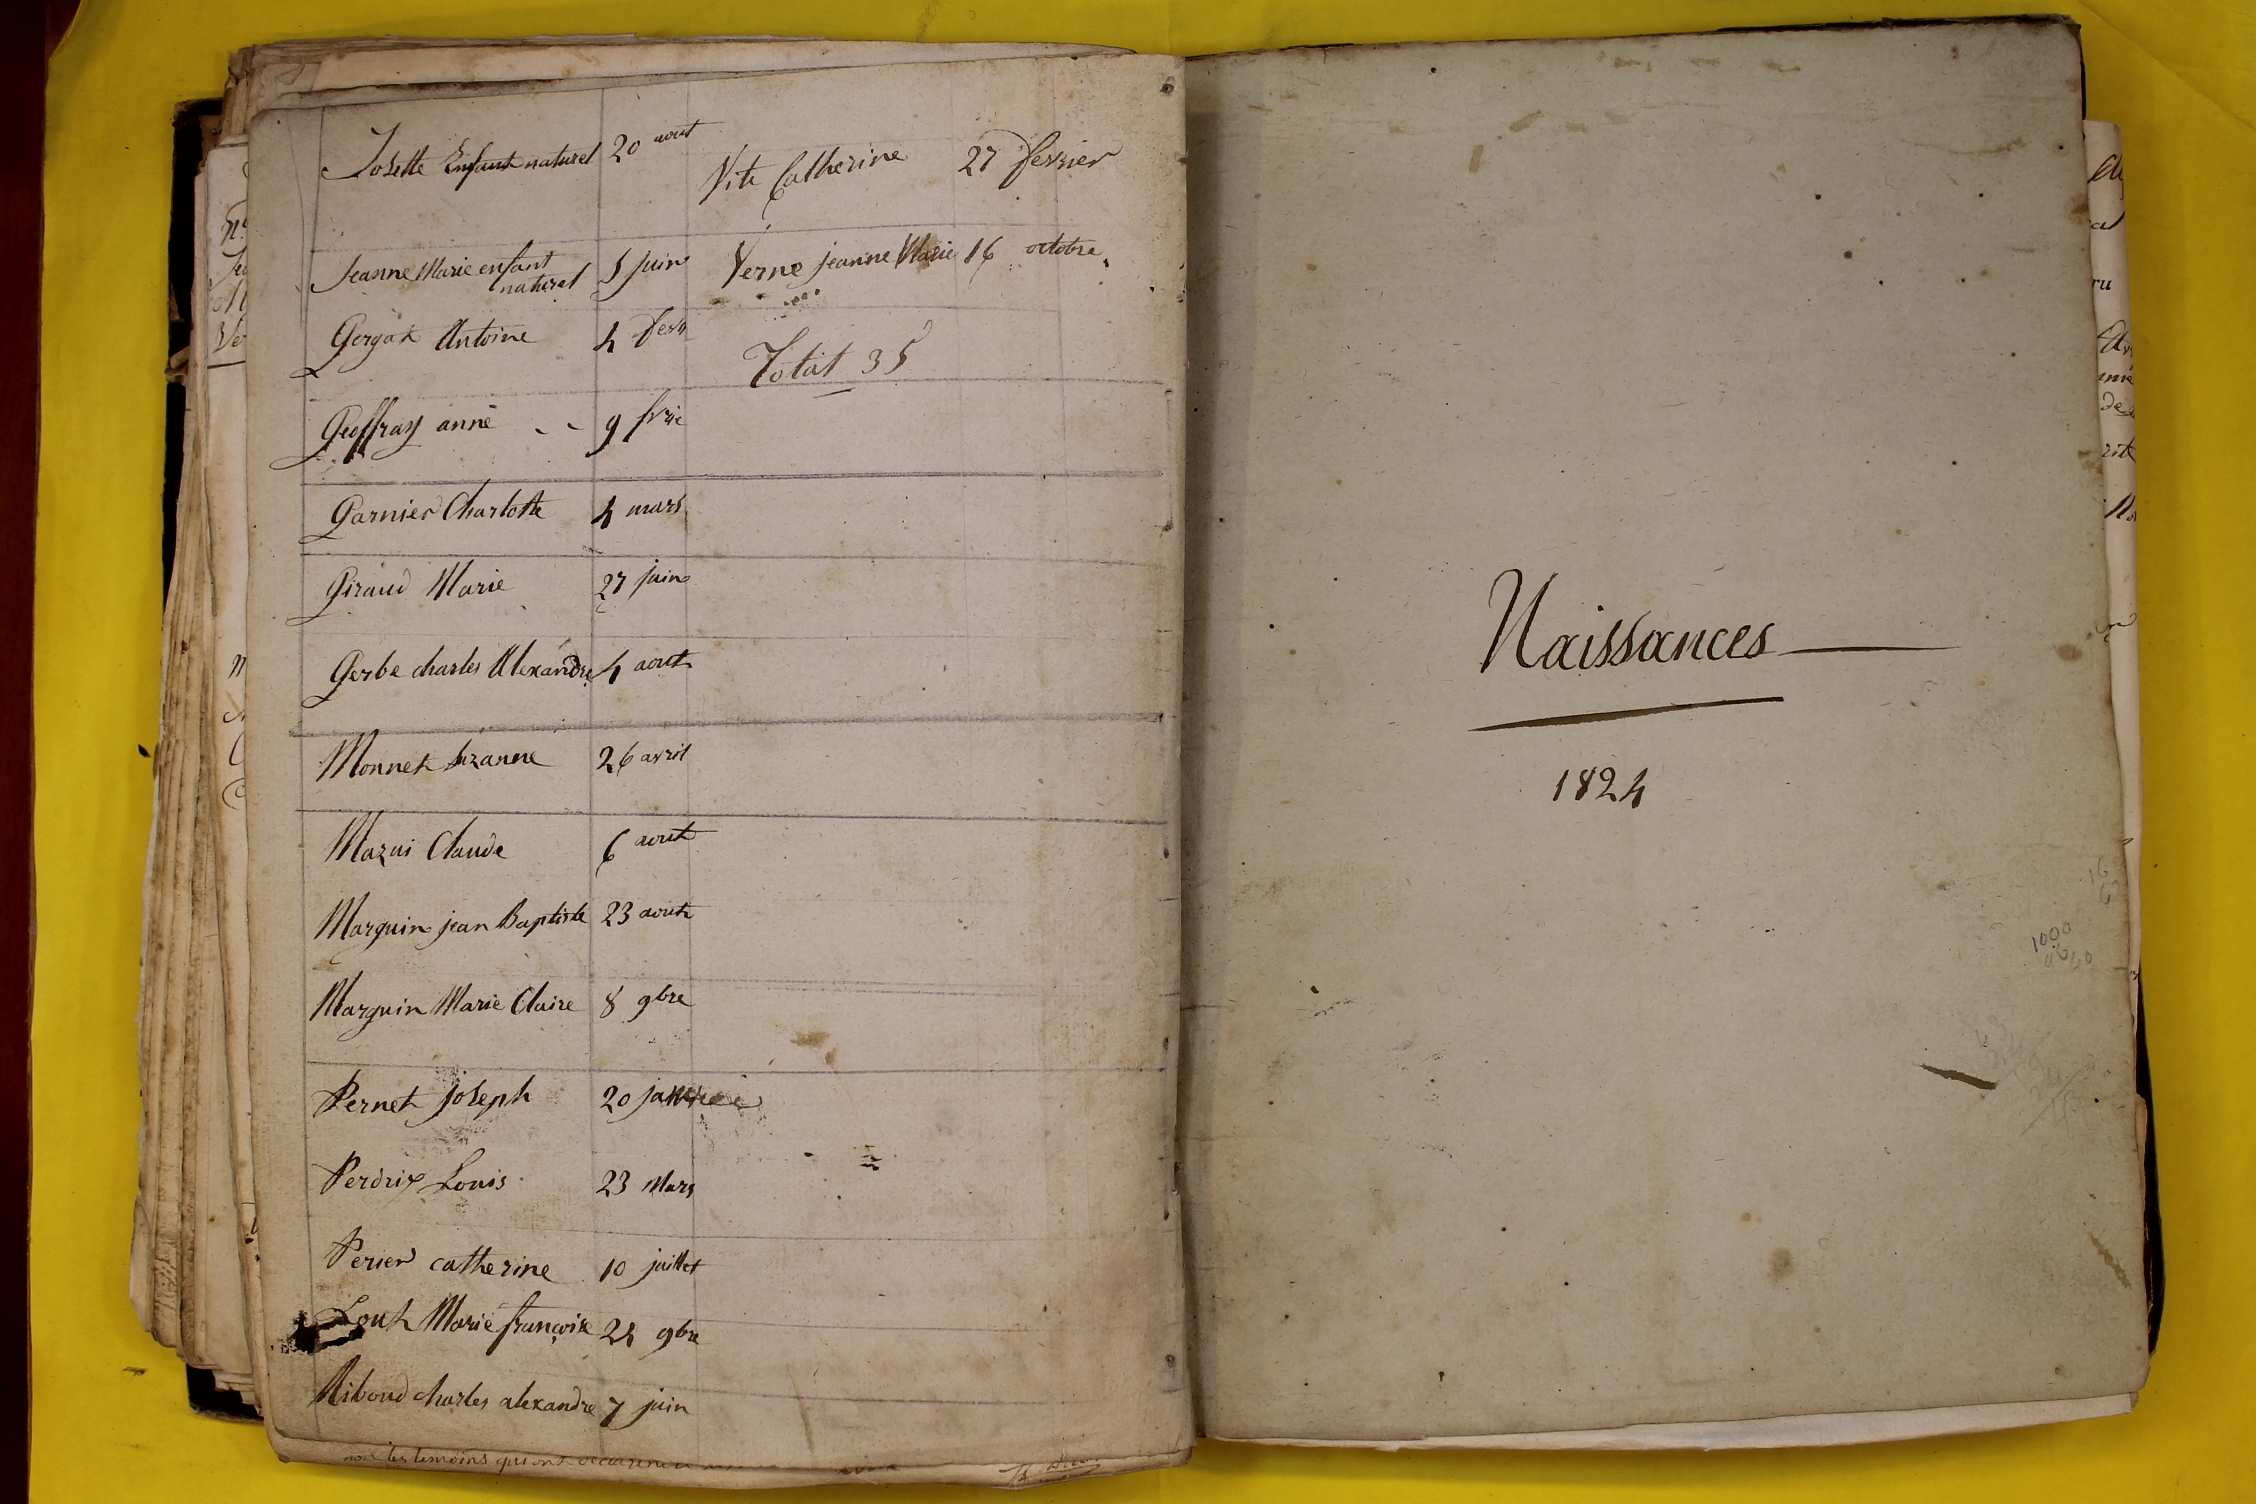 Josette Enfant naturel 20 aout
Jeanne Marie enfant
naturel 5 juin
Gergat Antoine 4 fevr
Geoffray anne - - 9 fvrie
Garnier Charlotte 4 mars
Giraud Marie 27 juin
Gerbe charles Alexandre 4 aout
Monnet suzanne 26 avril
Mazui Claude 6 aout
Marguin jean Baptiste 23 aout
Marguin Marie Claire 8 9bre
Pernet joseph 20
Perdrix Louis 23 Mars
Perier catherine 10 juillet
Marie françoise 24 9bre
Riboud charles alexandre 7 juin
Vite Catherine 27 fevrier
Verne jeanne Marie 16 octobre
Total 35
les temoins qui ont
Naissances
1824
1000